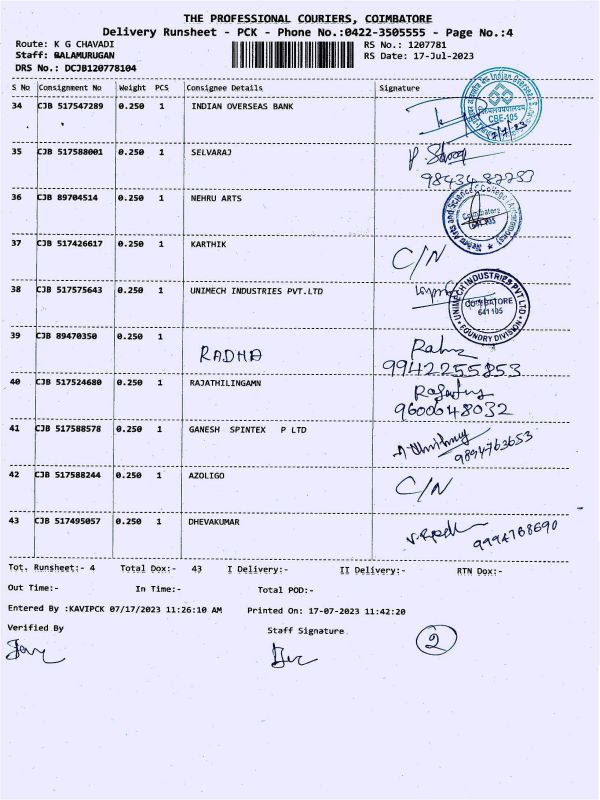 THE PROFESSIONAL COURIERS, COIMBATORE
Delivery Runsheet - PCK - Phone No.:0422-3505555 - Page No.:4
Route: K G CHAVADI RS No.: 1207781
Staff: BALAMURUGAN RS Date: 17-Jul-2023
DRS No.: DCJB120778104
S No Consignment No Weight PCS Consignee Details Signature
34 CJB 517547289 0.250 1 INDIAN OVERSEAS BANK
CBE-105
35 CJB 517588001 0.250 1 SELVARAJ
36 CJB 89704514 0.250 1 NEHRU ARTS
Nehru Arts and Science College (Autonomous)
Coimbatore
641 105
37 CJB 517426617 0.250 1 KARTHIK C/N
38 CJB 517575643 0.250 1 UNIMECH INDUSTRIES PVT.LTD
UNIMECH INDUSTRIES PVT LTD
COIMBATORE
641 105
FOUNDRY DIVISION
39 CJB 89470350 0.250 1 RADHA
9942255853
40 CJB 517524680 0.250 1 RAJATHILINGAMN
9600048032
41 CJB 517588578 0.250 1 GANESH SPINTEX P LTD
9894763653
42 CJB 517588244 0.250 1 AZOLIGO C/N
43 CJB 517495057 0.250 1 DHEVAKUMAR
9994768690
Tot. Runsheet:- 4 Total Dox:- 43 I Delivery:- II Delivery:- RTN Dox:-
Out Time:- In Time:- Total POD:-
Entered By :KAVIPCK 07/17/2023 11:26:10 AM Printed On: 17-07-2023 11:42:20
Verified By Staff Signature
2